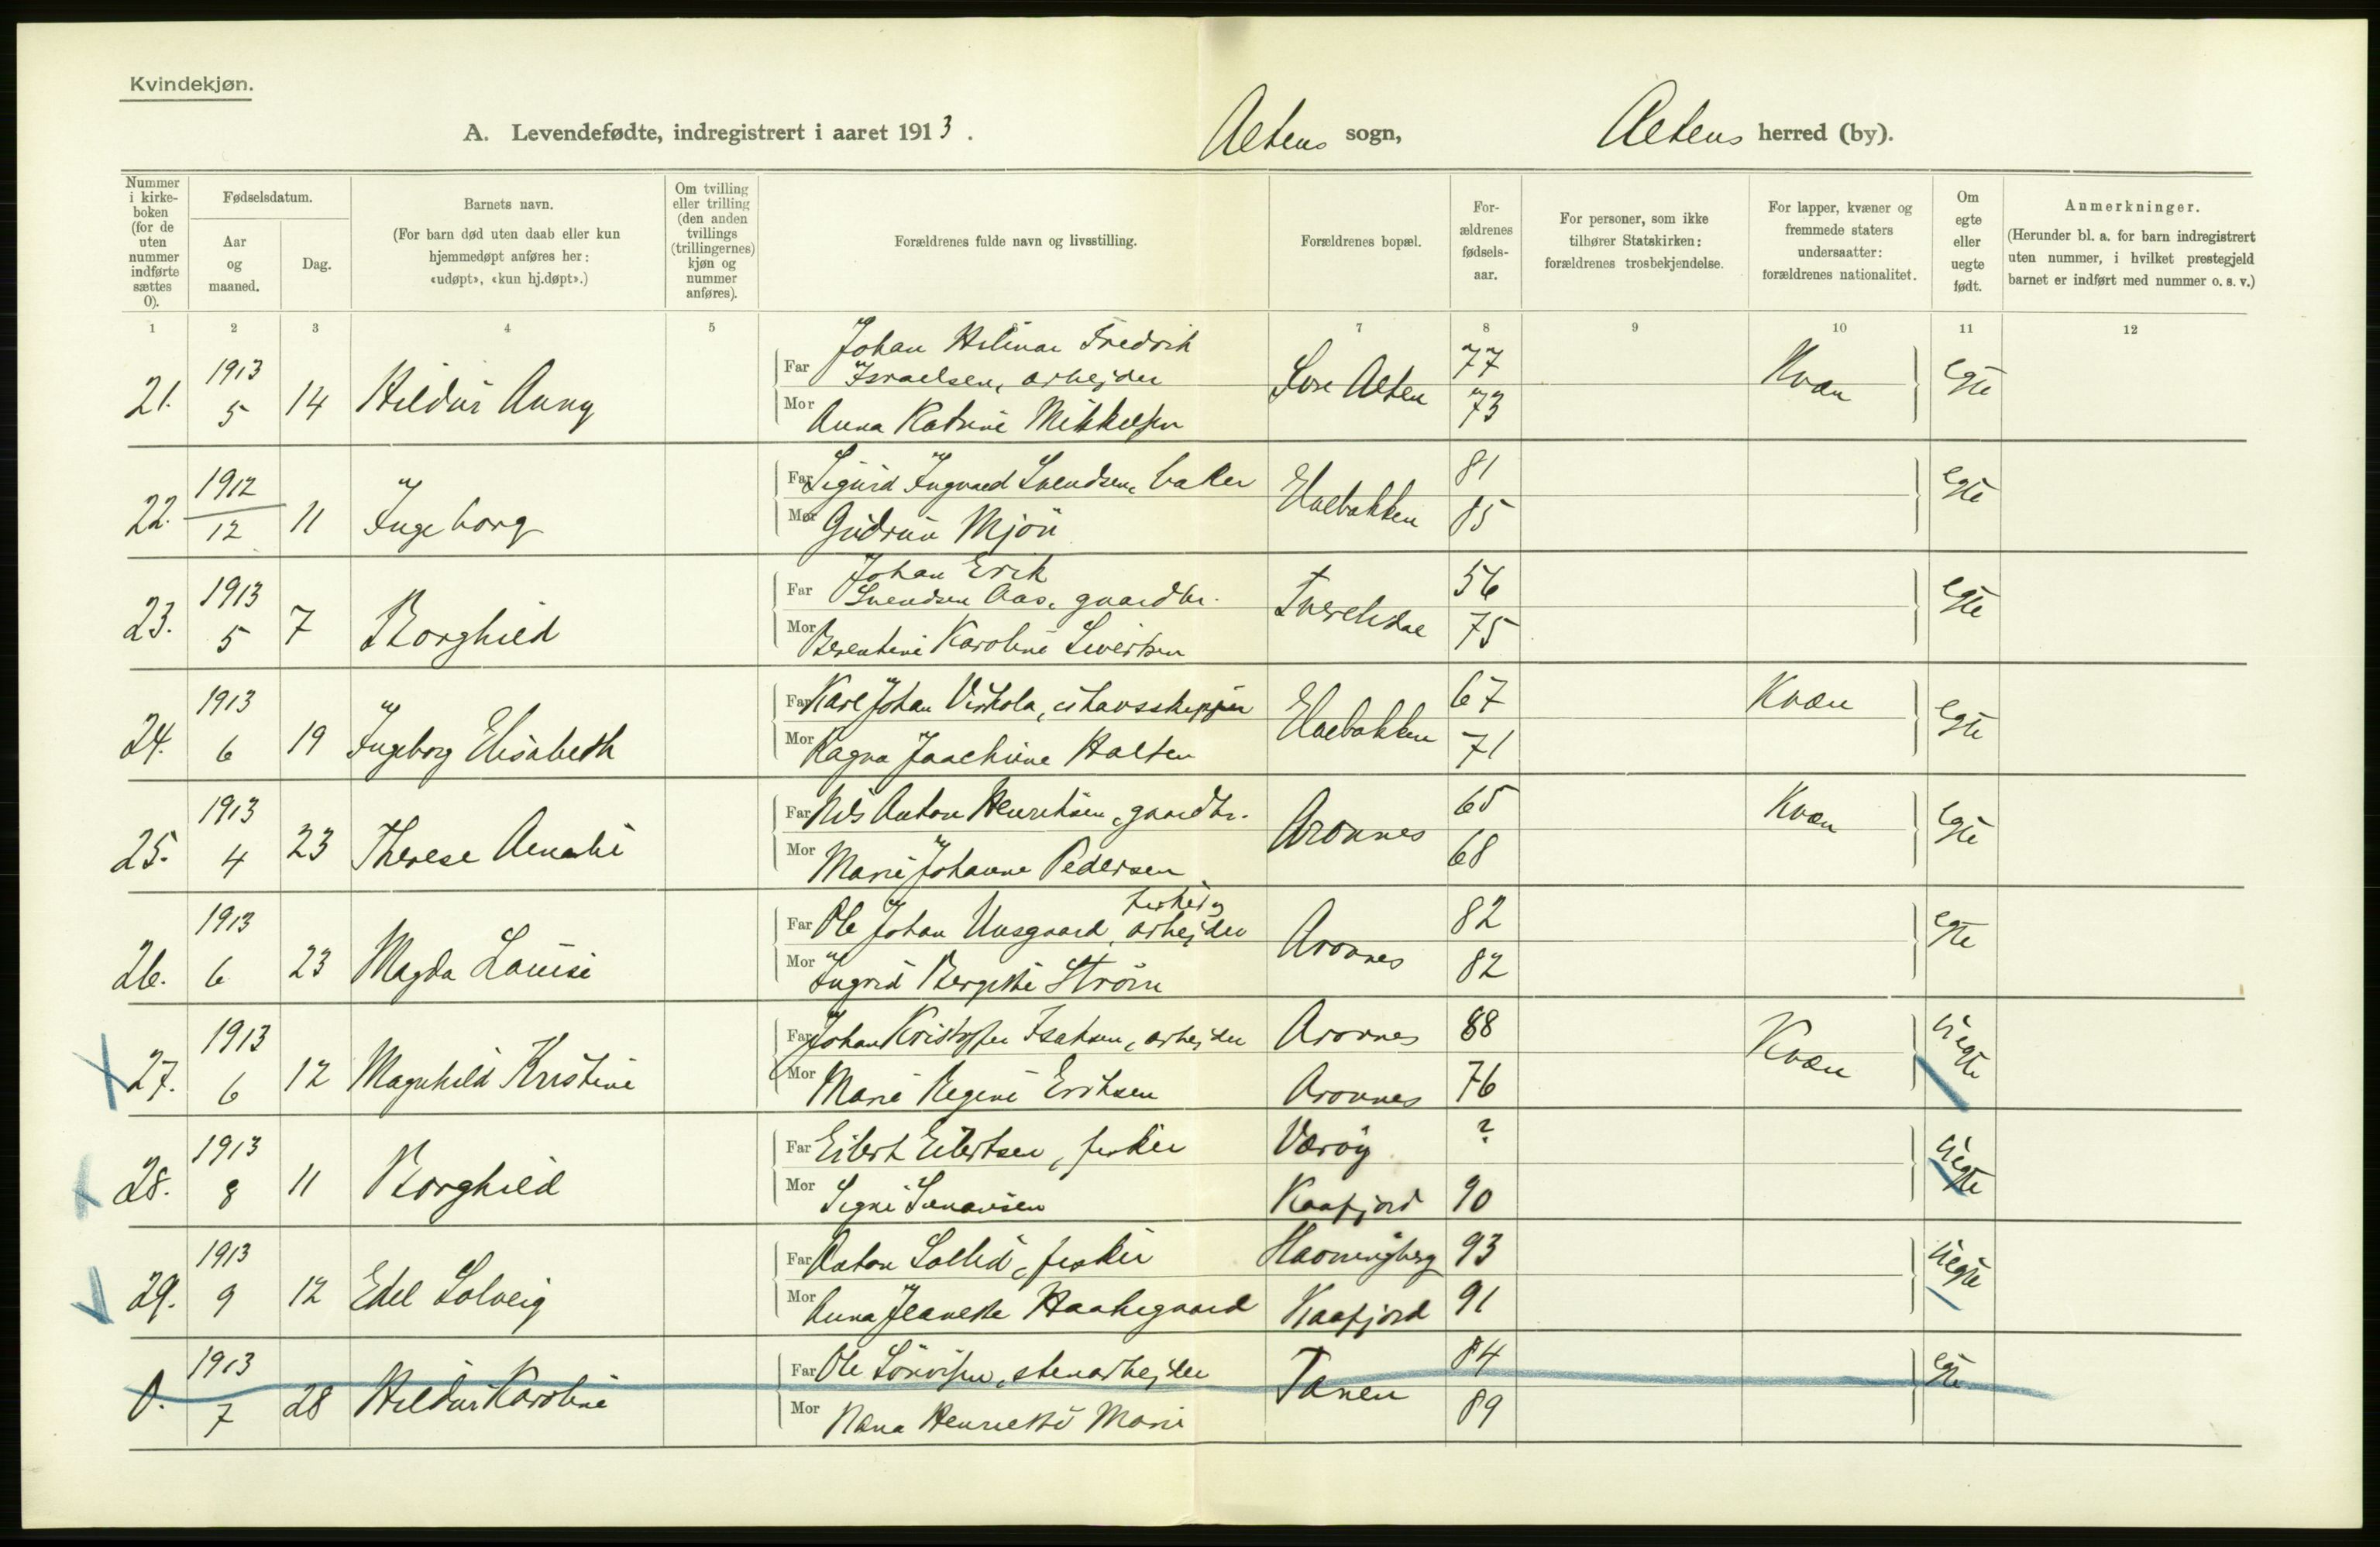 Kvindekjøn.
A. Levendefødte, indregistrert i aaret 1913. Altens sogn, Altens herred (by).
Nummer i kirke-boken (for de uten nummer indførte sættes 0).
Fødselsdatum.
Aar og maaned.
Dag.
Barnets navn.
(For barn død uten daab eller kun hjemmedøpt anføres her: «udøpt», «kun hj.døpt».)
Om tvilling eller trilling (den anden tvillings (trillingernes) kjøn og nummer anføres).
Forældrenes fulde navn og livsstilling.
Forældrenes bopæl.
For-ældrenes fødsels-aar.
For personer, som ikke tilhører Statskirken: forældrenes trosbekjendelse.
For lapper, kvæner og fremmede staters undersaatter: forældrenes nationalitet.
Om egte eller uegte født.
Anmerkninger.
(Herunder bl. a. for barn indregistrert uten nummer, i hvilket prestegjeld barnet er indført med nummer o. s. v.)
1 2 3 4 5 7 8 9 10 11 12
21. 1913 5 14 Hildur Anny
Far Johan Hilmar Fredrik Israelsen, arbejder
Mor Anna Katrine Mikkelsen
Sore Alten 77 73 Kvæn egte
22. 1912 12 11 Ingeborg
Far Sigurd Ingvard Svendsen, baker
Mor Gudrun Mjön
Elvebakken 81 85 egte
23. 1913 5 7 Borghild
Far Johan Erik Svendsen Aas, gaardbr.
Mor Berentine Karoline Sivertsen
Tverelvdal 56 75 egte
24. 1913 6 19 Ingeborg Elisabeth
Far Karl Johan Viskola, ishavsskipper
Mor Ragna Joachime Halten
Elvebakken 67 71 Kvæn egte
25. 1913 4 23 Therese Amalie
Far Nils Anton Henriksen, gaardbr.
Mor Marie Johanne Pedersen
Aronnes 65 68 Kvæn egte
26. 1913 6 23 Magda Louise
Far Ole Johan Unsgaard, fisker og arbejder
Mor Ingrid Bergitte Strøm
Aronnes 82 82 egte
27. 1913 6 12 Magnhild Kristine
Far Johan Kristoffer Isaksen, arbejder Aronnes 88
Mor Marie Regine Eriksen Aronnes 76
Kvæn uegte
28. 1913 8 11 Borghild
Far Eilert Eilertsen, fisker Værøy ?
Mor Signe Kaafjord 90
uegte
29. 1913 9 12 Edel Solveig
Far Anton Sollid, fisker Havningberg 93
Mor Anna Jeanette Haakegaard Kaafjord 91
uegte
0. 1913 7 28 Hildur Karoline
Far Ole, stenarbejder
Mor Nana Henriette Marie
Tanen 84 89 egte